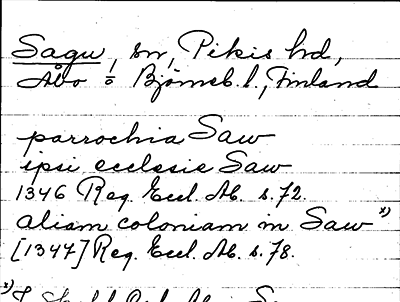 Sagu, sn, Pikis hd,
Åbo o Björneb. l., Finland
parrochia Saw
ipsi ecclesie Saw
1346 Reg. Eccl. Ab. s. 72.
aliam coloniam in Saw x)
[1347] Reg. Eccl. Ab. s. 78.